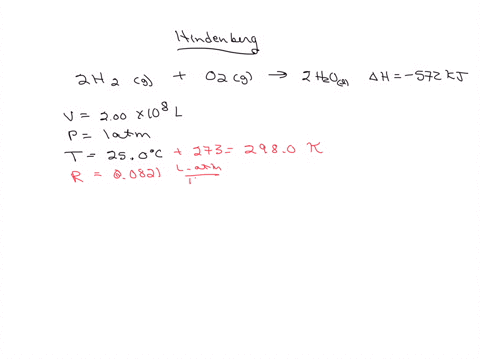 Hindenberg
2H2 (g) + O2(g) → 2H2O(g) ΔH = -572 kJ
V = 2.00 × 10⁸ L
P = 1 atm
T = 25.0°C + 273 = 298.0 K
R = 0.0821 L-atm